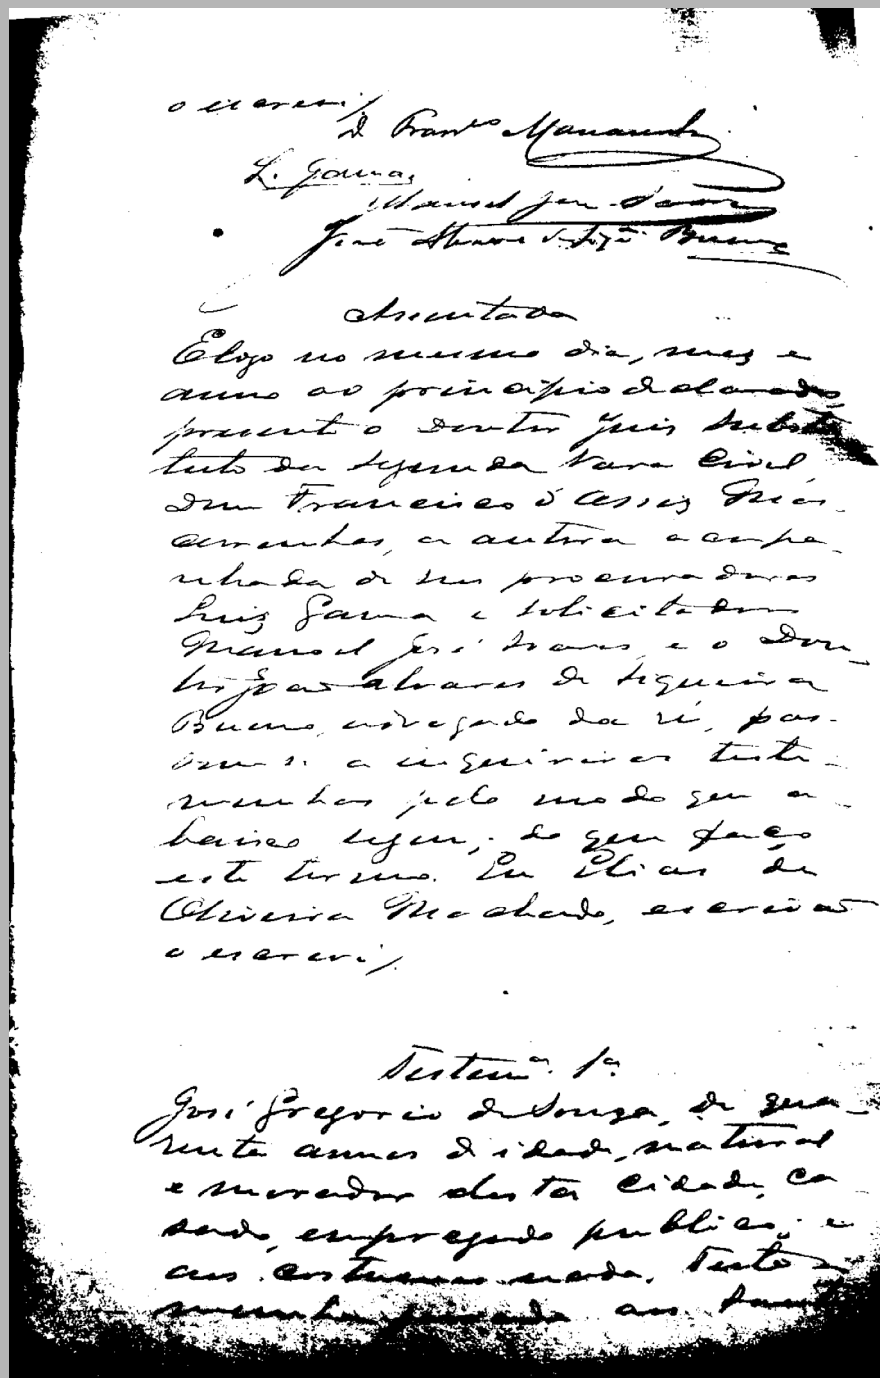 o escrevi/
D. Franco Mascarenhas
L. Gama
Manoel José Soares
José Alvares de Siqra Bueno
Assentada
E logo no mesmo dia, mez e
anno ao principio declarado,
presente o Doutor Juiz Substi
tuto da Segunda Vara Civel
Dom Francisco d'Assiz Mas-
carenhas, a autora acompa-
nhada de seus procuradores
Luiz Gama e solicitador
Manoel José Soares, e o Dou-
tor João Alvares de Siqueira
Bueno, advogado da ré, pas-
sou-se a inquirir as teste-
munhas pelo modo que a-
baixo segue; do que faço
este termo. Eu Elias de
Oliveira Machado, escrivão
o escrevi/.
Testema. 1a.
José Gregorio de Souza, de qua-
renta annos de idade, natural
e morador desta Cidade, ca
sado, empregado publico; e
aos costumes nada. Teste-
munha jurada aos Santos